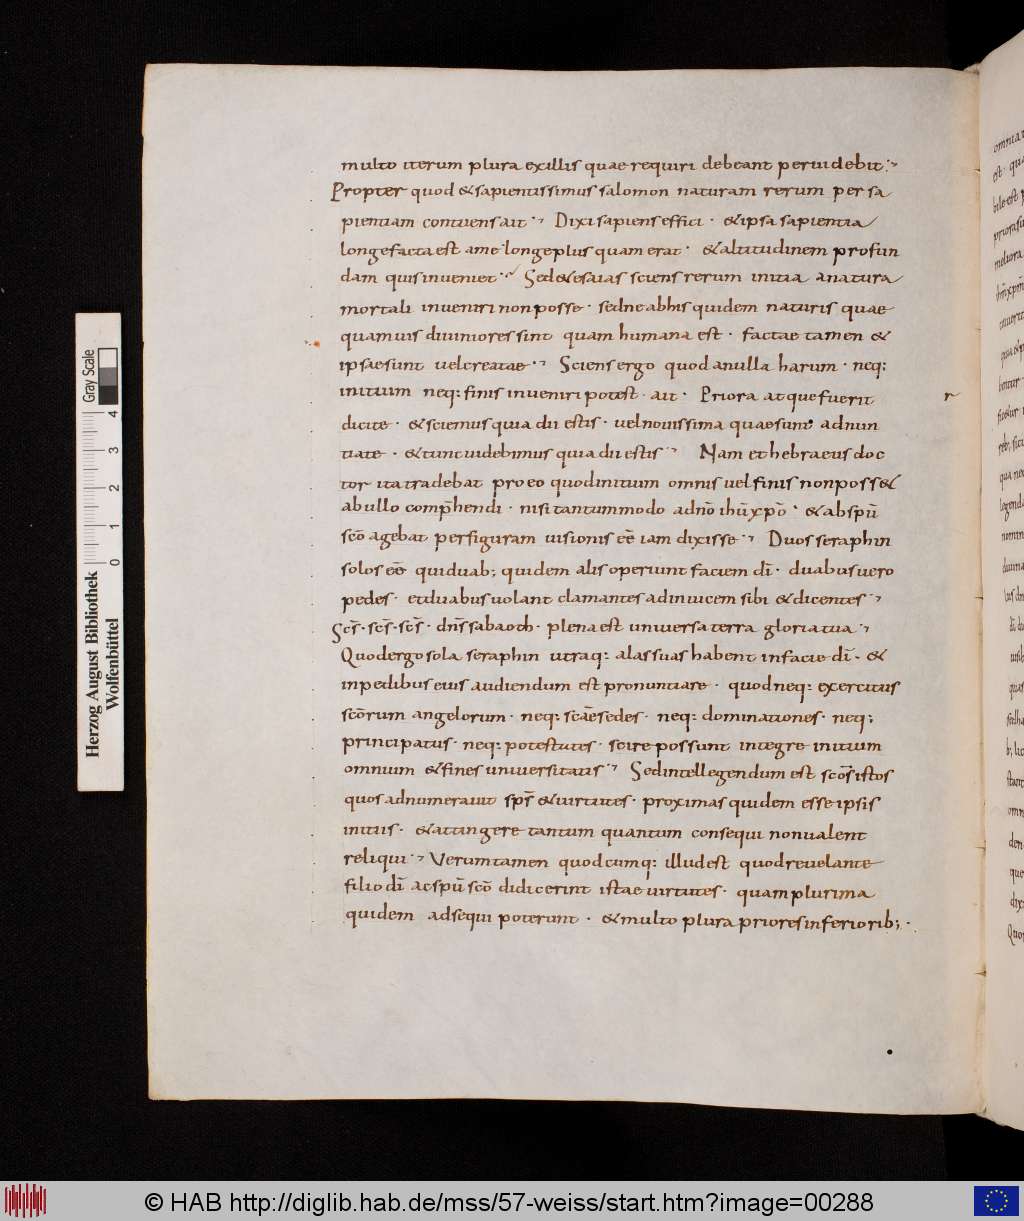 multo iterum plura ex illis quae requiri debeant pervidebit.
Propter quod & sapientissimus salomon naturam rerum per sa
pientiam contuens ait. Dixi sapiens effici. & ipsa sapientia
longe facta est a me longe plus quam erat. & altitudinem profun
dam quis inveniet. Sed & esaias sciens rerum initia a natura
mortali inveniri non posse. sed ne ab his quidem naturis quae
quamuis diviniores sint quam humana est. factae tamen &
ipsae sunt vel creatae. Sciens ergo quod a nulla harum. neq:
initium neq: finis inveniri potest. ait. Priora atque fuerit
dicite. & sciemus quia dii estis. vel novissima quae sunt adnun
tiate. & tunc videbimus quia dii estis. Nam et hebraeus doc
tor ita tradebat pro eo quod initium omnis vel finis non poss&
ab ullo comp̄hendi. nisi tantummodo a dn̄o ihū xp̄o. & ab spū
scō agebat per figuram visionis eē iam dixisse. Duos seraphin
solos eē qui duab; quidem alis operiunt faciem dī. duabus vero
pedes. et duabus volant clamantes ad invicem sibi & dicentes.
Scs̄. scs̄. scs̄. dns̄ sabaoth. plena est universa terra gloria tua.
Quod ergo sola seraphin utraq: alas suas habent in facie dī. &
in pedibus eius audiendum est pronuntiare. quod neq: exercitus
scōrum angelorum. neq: scāe sedes. neq: dominationes. neq:
principatus. neq: potestates. scire possunt integre initium
omnium & fines universitatis. Sed intellegendum est scōs istos
quos adnumeravit sps̄ & virtutes. proximas quidem esse ipsis
initiis. & attingere tantum quantum consequi non valent
reliqui. Verum tamen quodcumq: illud est quod revelante
filio dī ac spū scō didicerint istae virtutes. quam plurima
quidem adsequi poterunt. & multo plura priores inferiorib;.
r
Gray Scale
0 1 2 3 4
Herzog August Bibliothek
Wolfenbüttel
© HAB http://diglib.hab.de/mss/57-weiss/start.htm?image=00288